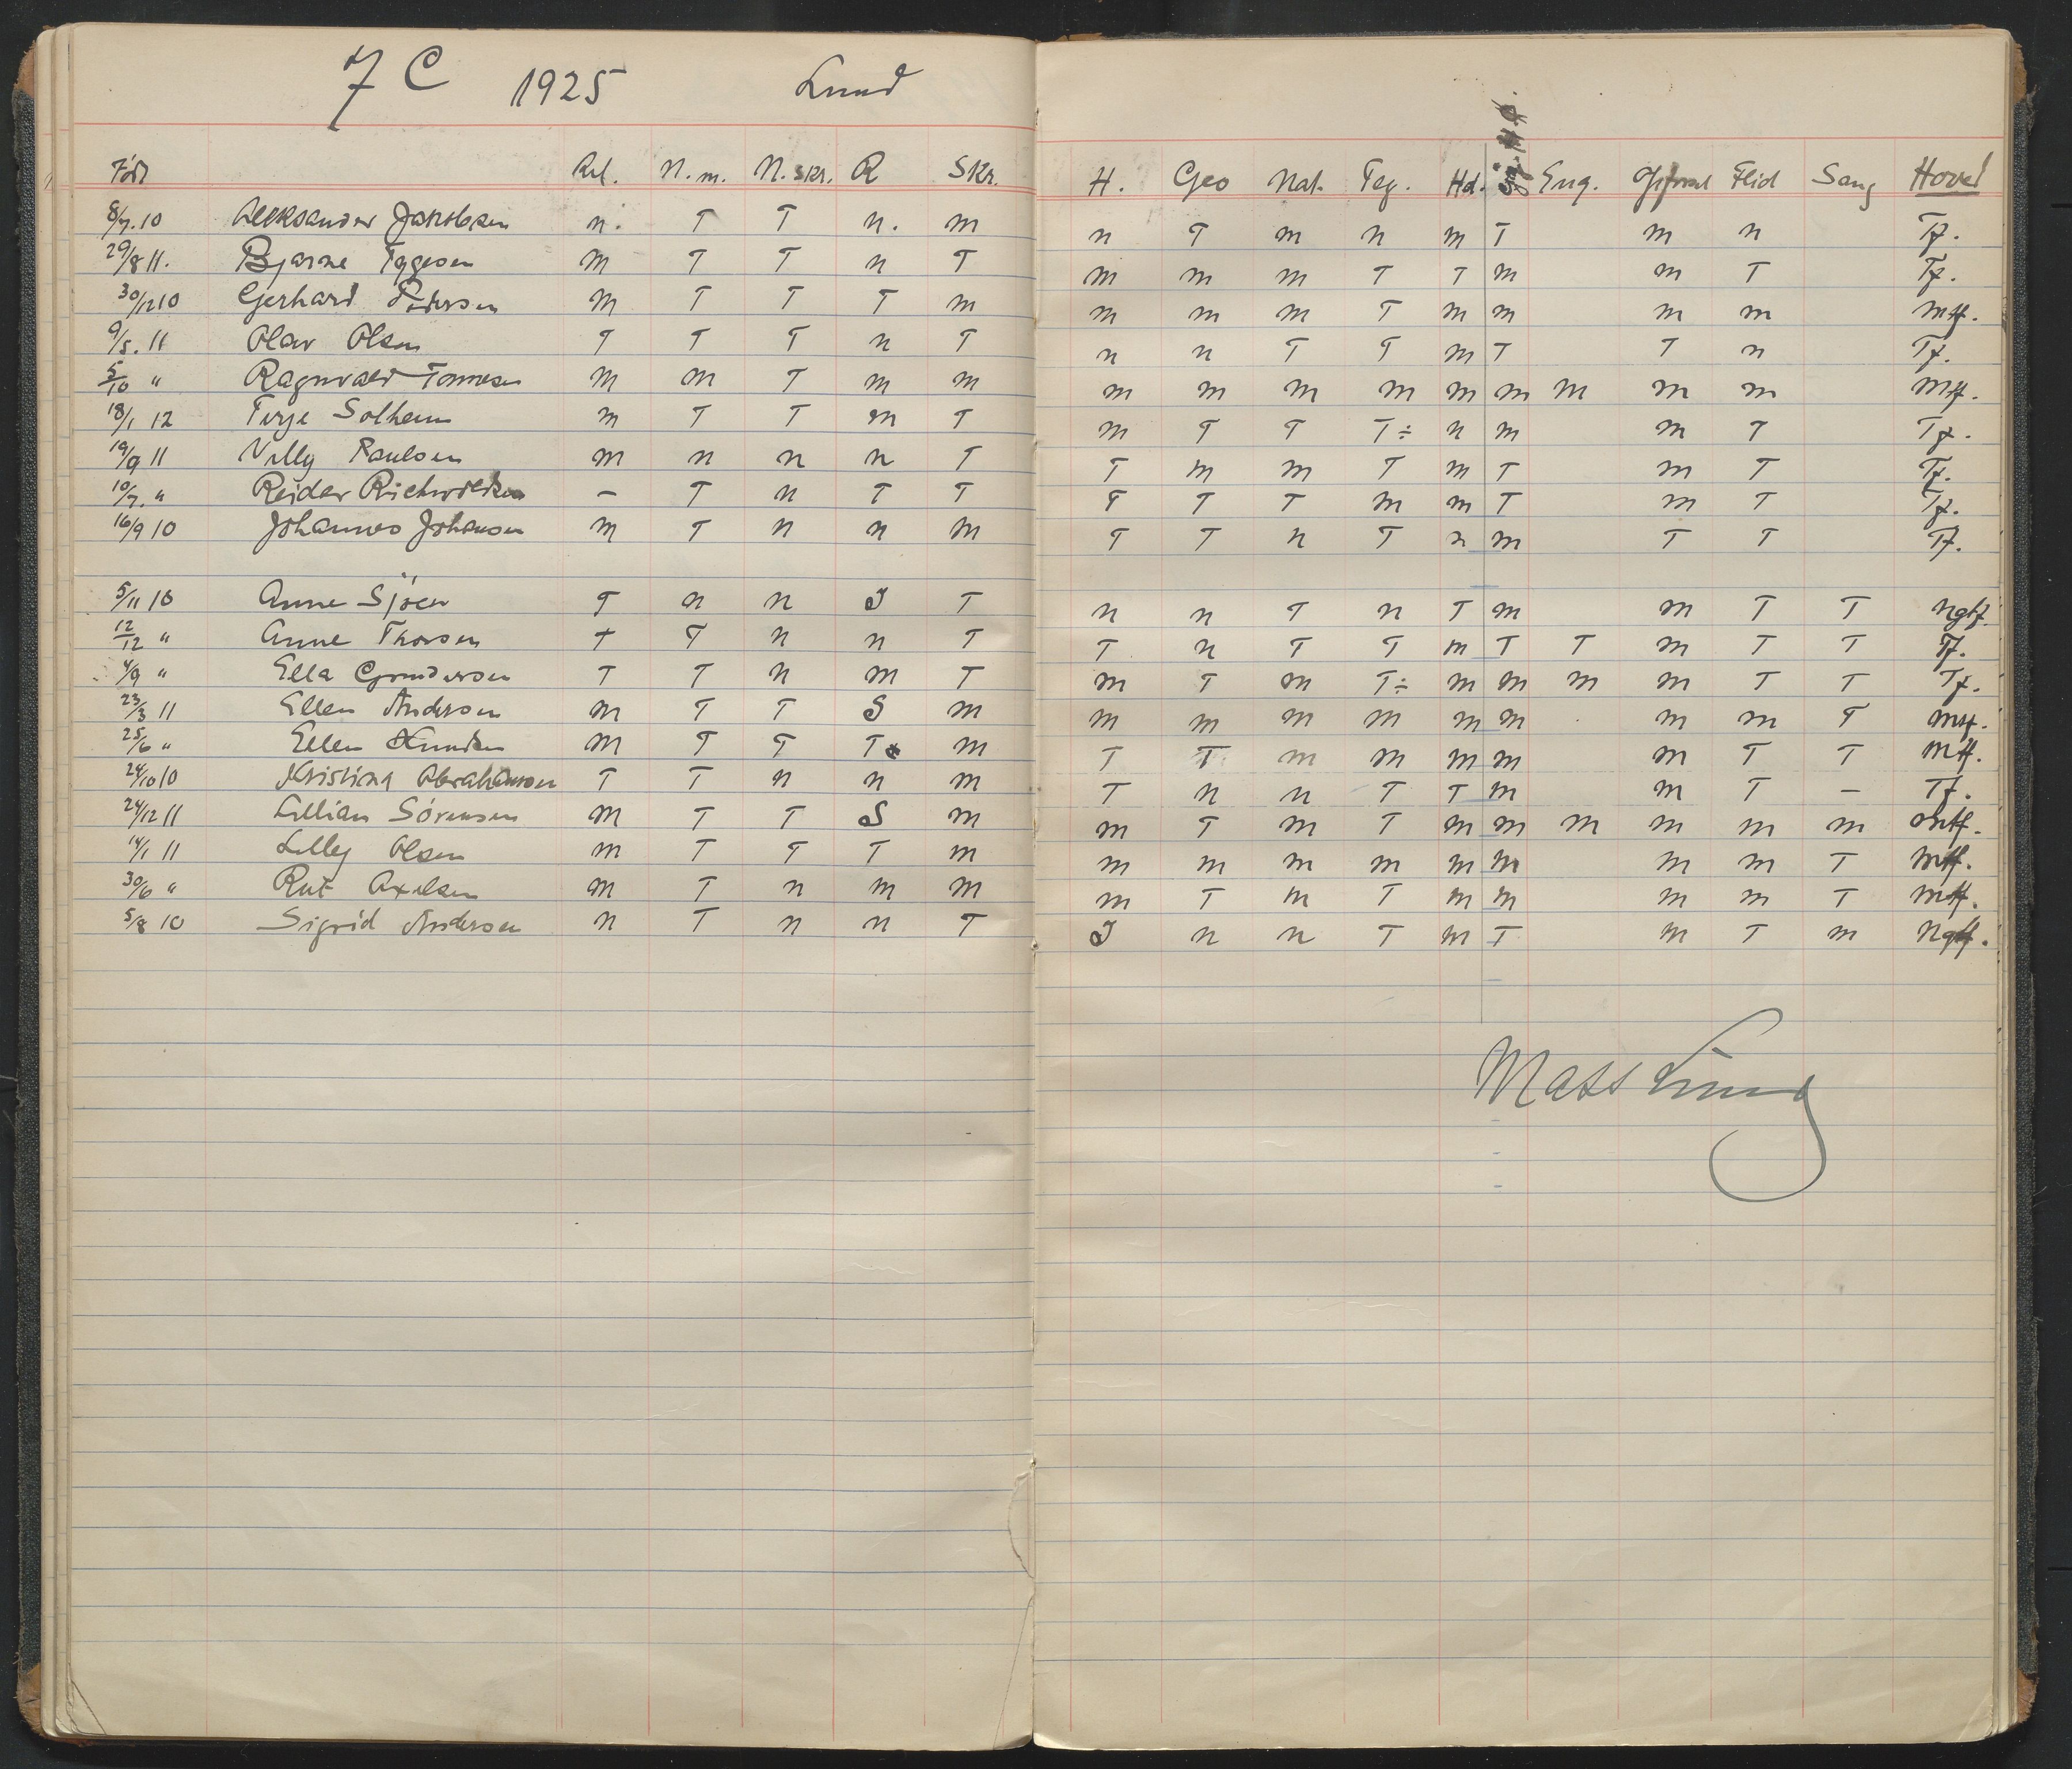 7 C 1925 Lund
Født Rel. N. m. N. skr. R Skr. H. Geo Nat. Teg. Hd. Eng. Opførsel Flid Sang Hoved
8/7. 10 Aleksander Jakobsen n. T T n. m n T m n m T m n Tf.
29/8 11. Bjarne Tygesen M T T n T m m m T T m m T Tf.
30/12 10 Gerhard Pedersen M T T T m m m m T m m m m mtf.
9/5. 11 Olav Olsen T T T n T n n T T m T T n Tf.
5/10 " Ragnvald Tønnesen M m T m m m m m m m m m m m mtf.
18/1 12 Terje Solheim m T T m T m T T T÷ n m m T Tf.
19/9 11 Villy Paulsen m n n n T T m m T m T m T Tf.
10/7. " Reidar Richvoldsen – T n T T T T T m m T m T Tf.
16/9 10 Johannes Johansen m T n n m T T n T n m T T Tf.
5/11 10 Anne Sjøen T n n J T n n T n T m m T T ngtf.
12/12 " Anne Thorsen + T n n T T n T T m T T m T T Tf.
4/9 " Ella Gundersen T T n m T m T m T÷ m m m m T T Tf.
23/3 11 Ellen Andersen m T T S m m m m m m m m m T mtf.
25/6 " Ellen Knudsen M T T T m T T m m m m m T T mtf.
24/10 10 Kristina Abrahamsen T T n n m T n n T T m m T – Tf.
24/12 11 Lillian Sørensen M T T S m m T m T m m m m m m mtf.
14/1 11 Lilly Olsen m T T T m m m m m m m m m T mtf.
30/6 " Rut Axelsen M T n m m m T m T m m m m T mtf.
5/8 10 Sigrid Andersen n T n n T J n n T m T m T m Ngtf.
Mass Lund